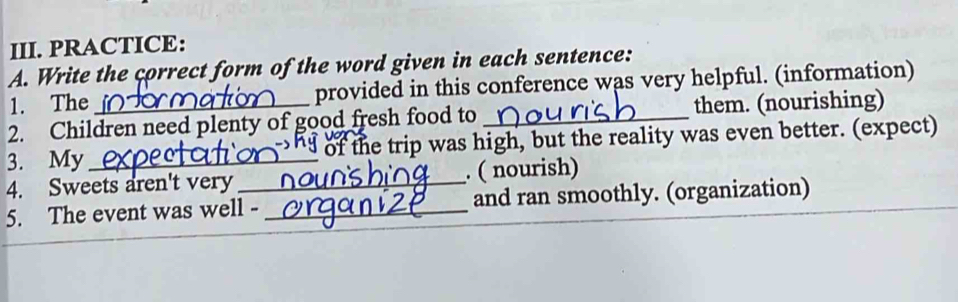 III. PRACTICE:
A. Write the correct form of the word given in each sentence:
1. The information provided in this conference was very helpful. (information)
2. Children need plenty of good fresh food to nourish them. (nourishing)
hy vọng
3. My expectation -> of the trip was high, but the reality was even better. (expect)
4. Sweets aren't very nourishing. ( nourish)
5. The event was well - organize and ran smoothly. (organization)